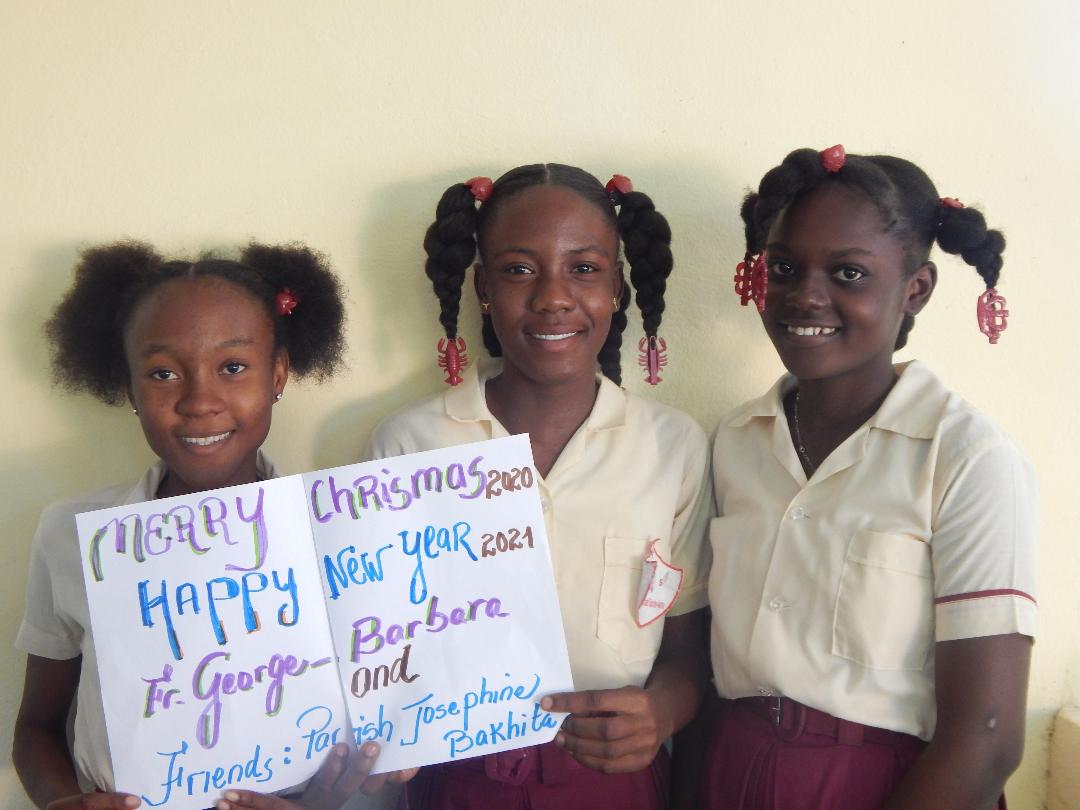 MERRY Chrismas 2020
HAPPY New year 2021
Fr. George - Barbara
and
Friends: Parrish Josephine
Bakhita